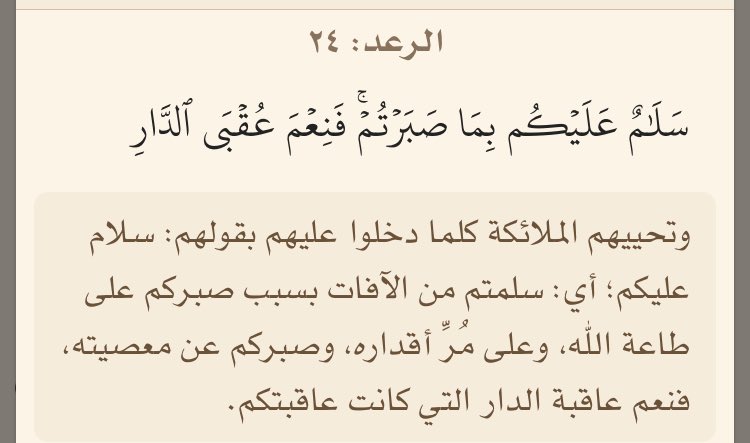 الرعد: ٢٤
سَلَٰمٌ عَلَيۡكُم بِمَا صَبَرۡتُمۡۚ فَنِعۡمَ عُقۡبَى ٱلدَّارِ
وتحييهم الملائكة كلما دخلوا عليهم بقولهم: سلام
عليكم؛ أي: سلمتم من الآفات بسبب صبركم على
طاعة الله، وعلى مُرِّ أقداره، وصبركم عن معصيته،
فنعم عاقبة الدار التي كانت عاقبتكم.